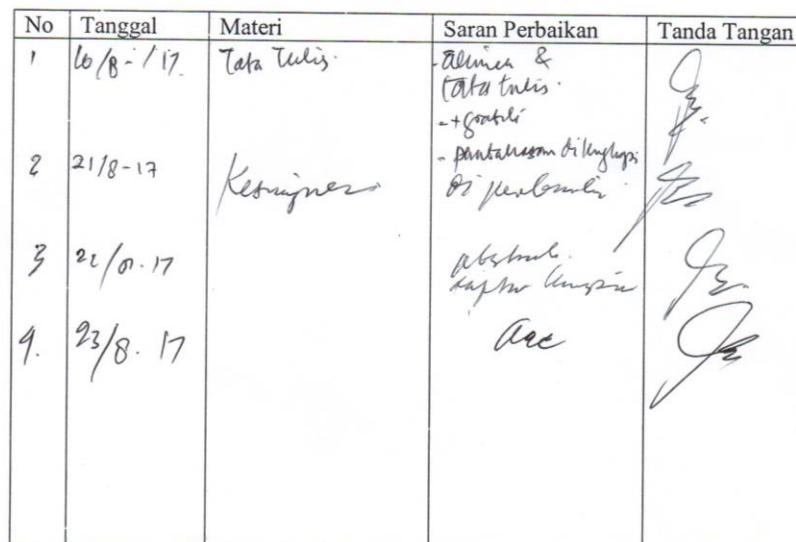 No Tanggal Materi Saran Perbaikan Tanda Tangan
1 16/8-'17 Tata Tulis - alinea &
tata tulis.
- + grafik
- pembahasan dilengkapi
2 21/8-17 Kesimpulan di perbaiki
3 22/8-17 abstrak
daftar lampiran
4. 23/8-17 acc